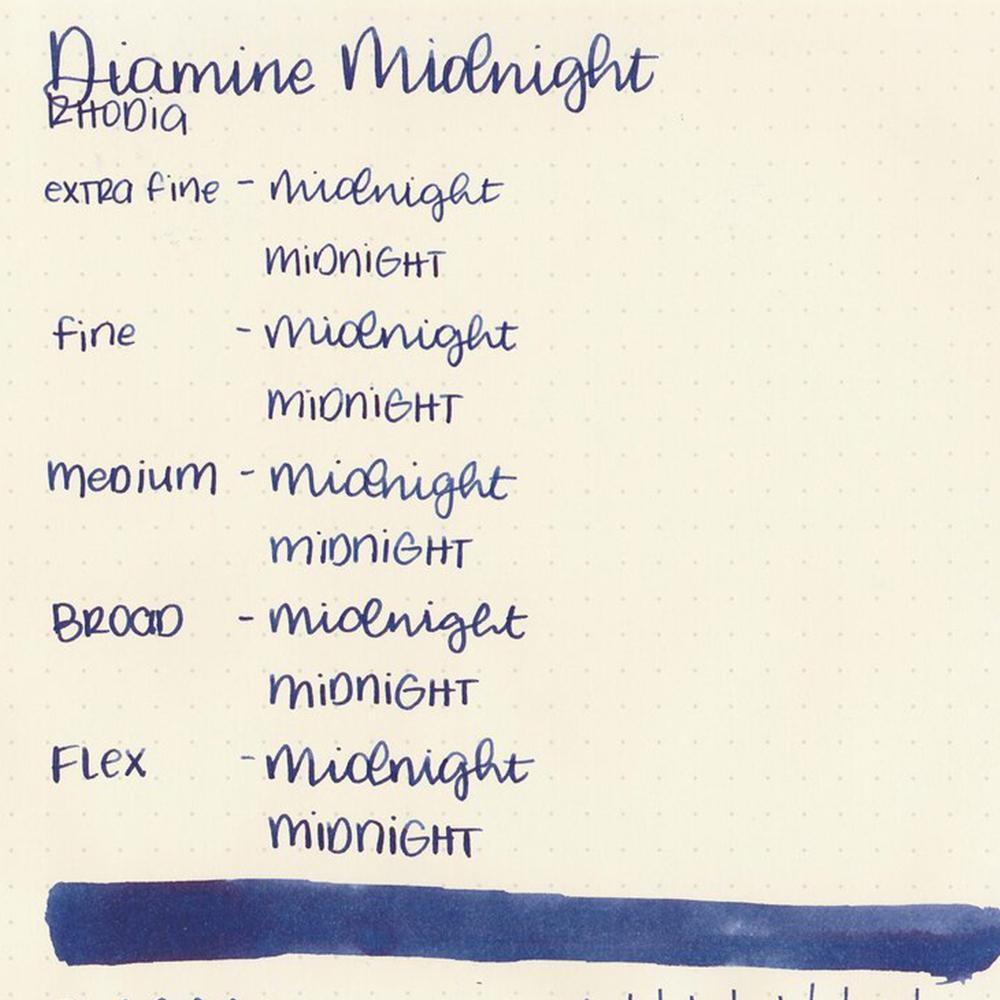 Diamine Midnight
RHODIA
extra fine - Midnight
MIDNIGHT
fine - Midnight
MIDNIGHT
medium - Midnight
MIDNIGHT
BROAD - Midnight
MIDNIGHT
Flex - Midnight
MIDNIGHT